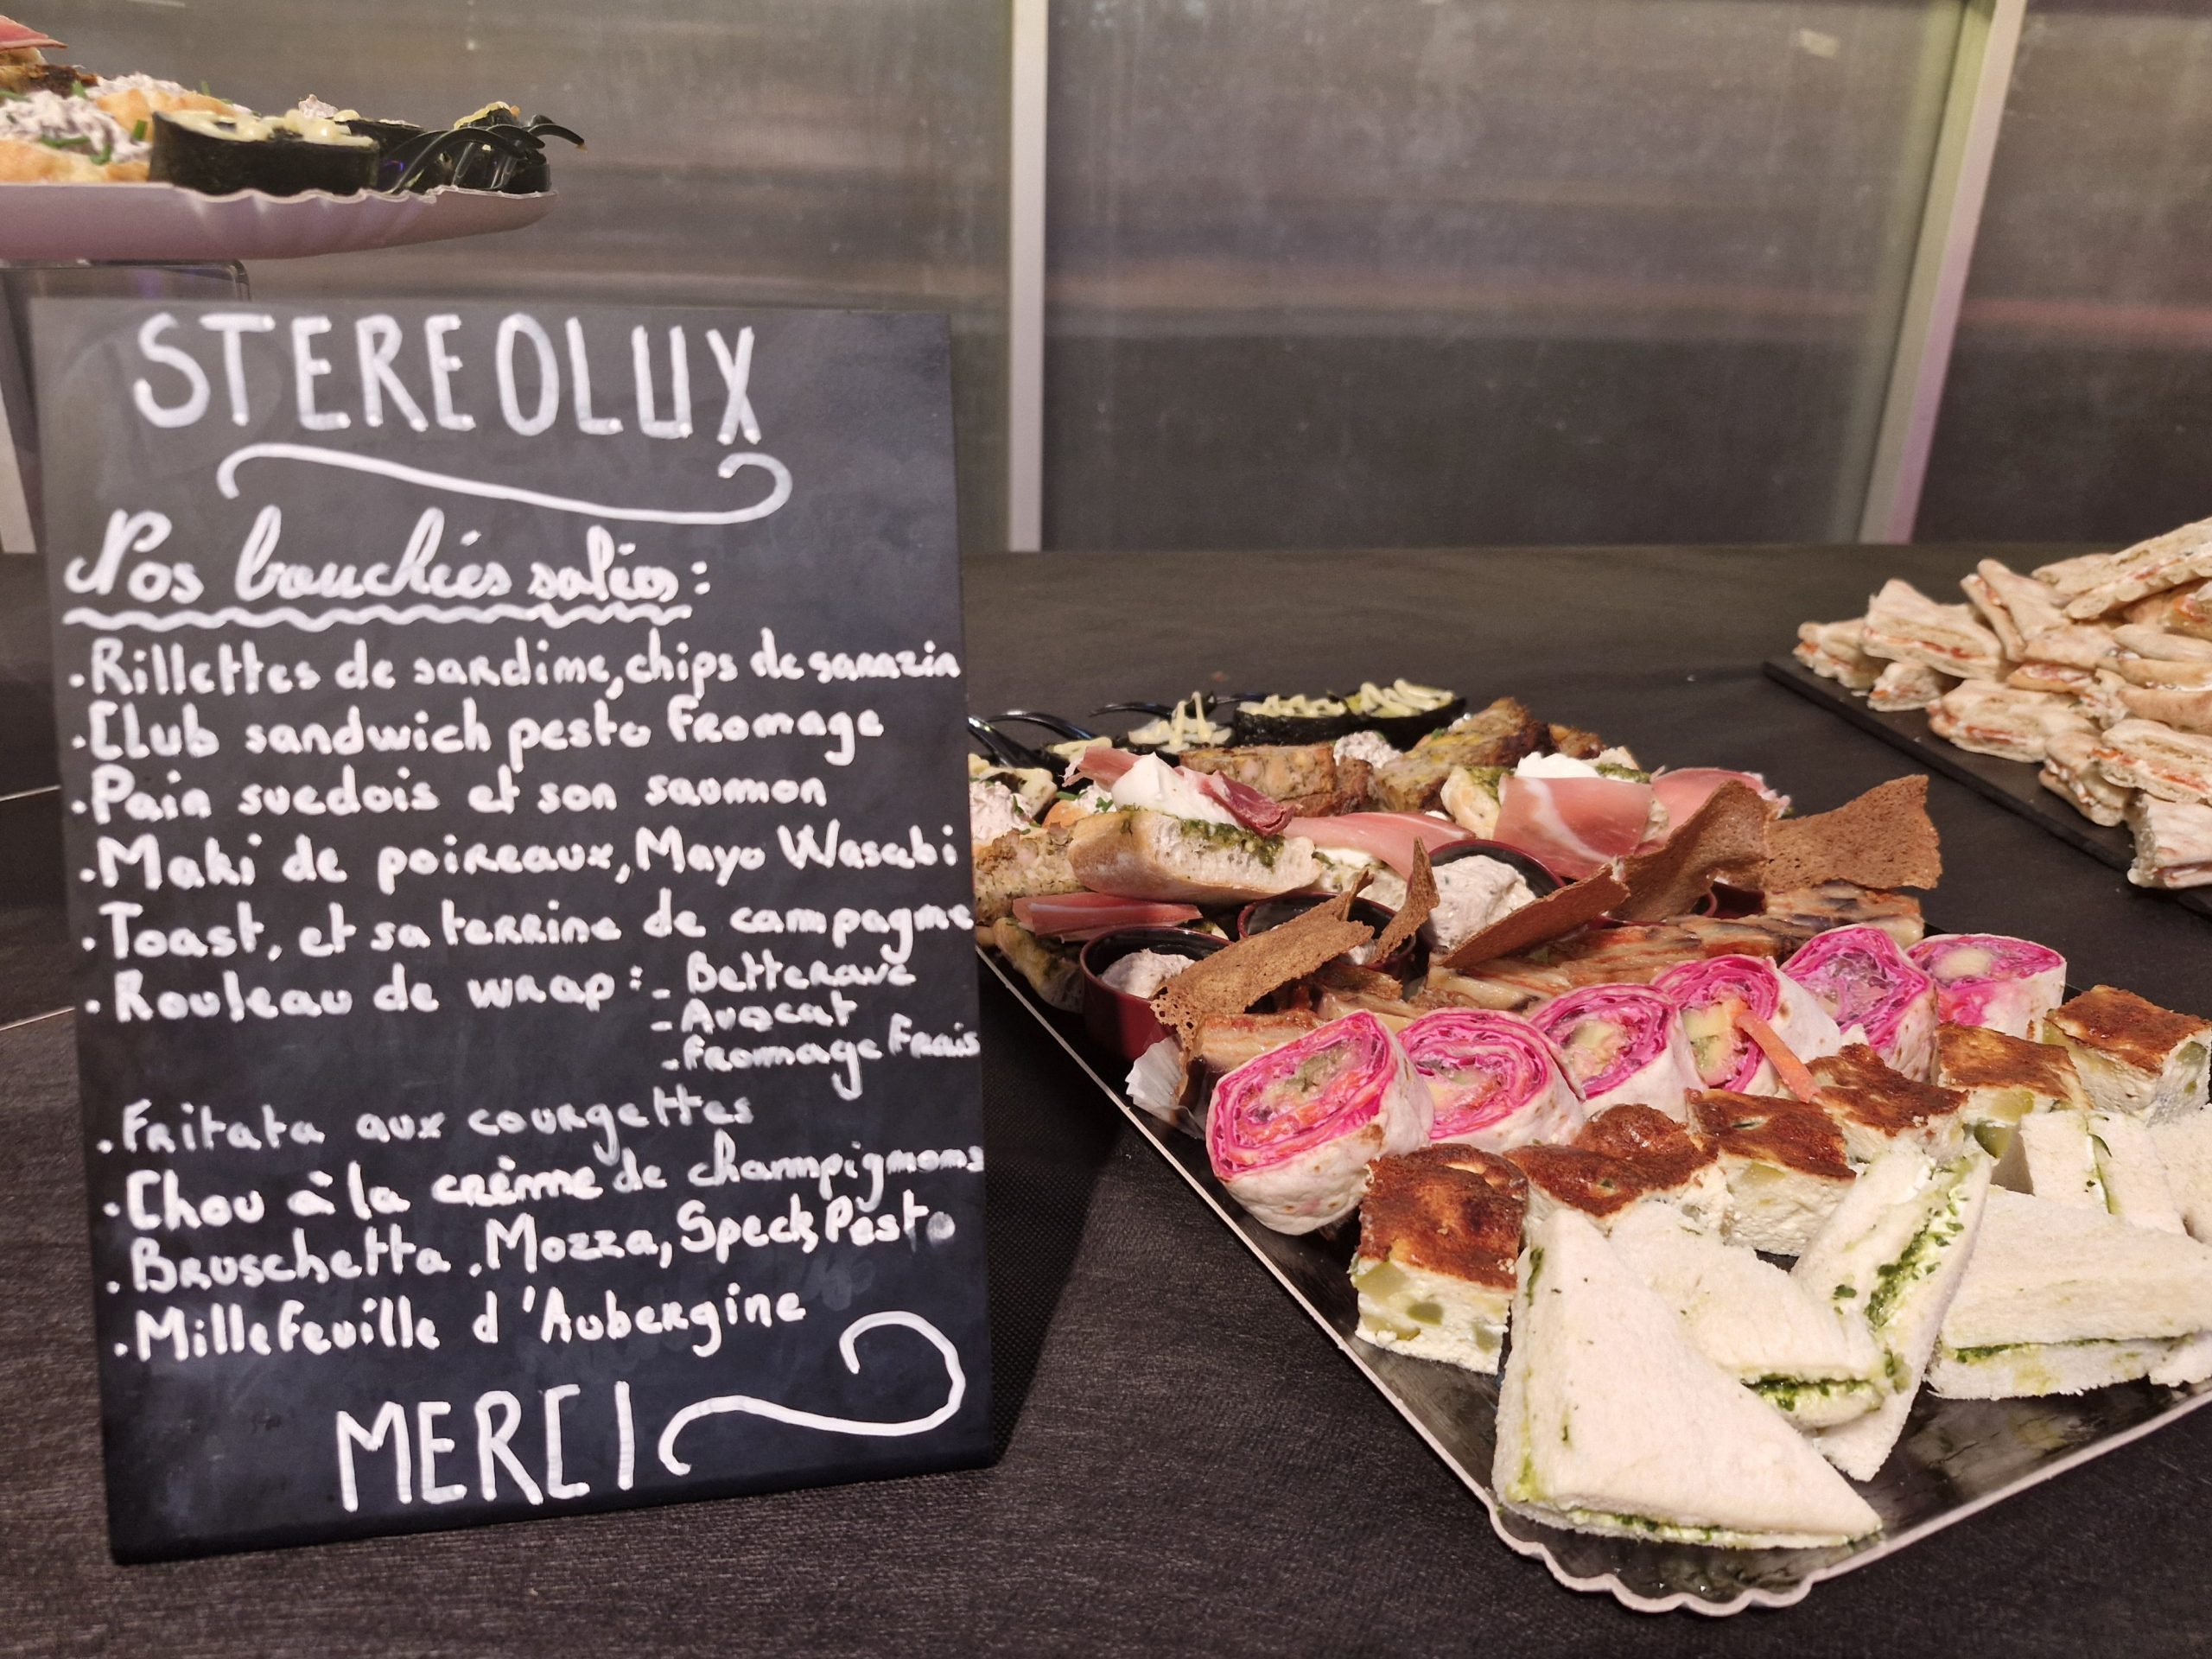 STEREOLUX
Nos bouchées salées :
. Rillettes de sardine, chips de sarrazin
. Club sandwich pesto fromage
. Pain suedois et son saumon
. Maki de poireaux, Mayo Wasabi
. Toast, et sa terrine de campagne
. Rouleau de wrap : - Betterave
- Avocat
- fromage frais
. Fritata aux courgettes
. Chou à la crème de champignons
. Bruschetta, Mozza, Speck, Pesto
. Millefeuille d'Aubergine
MERCI